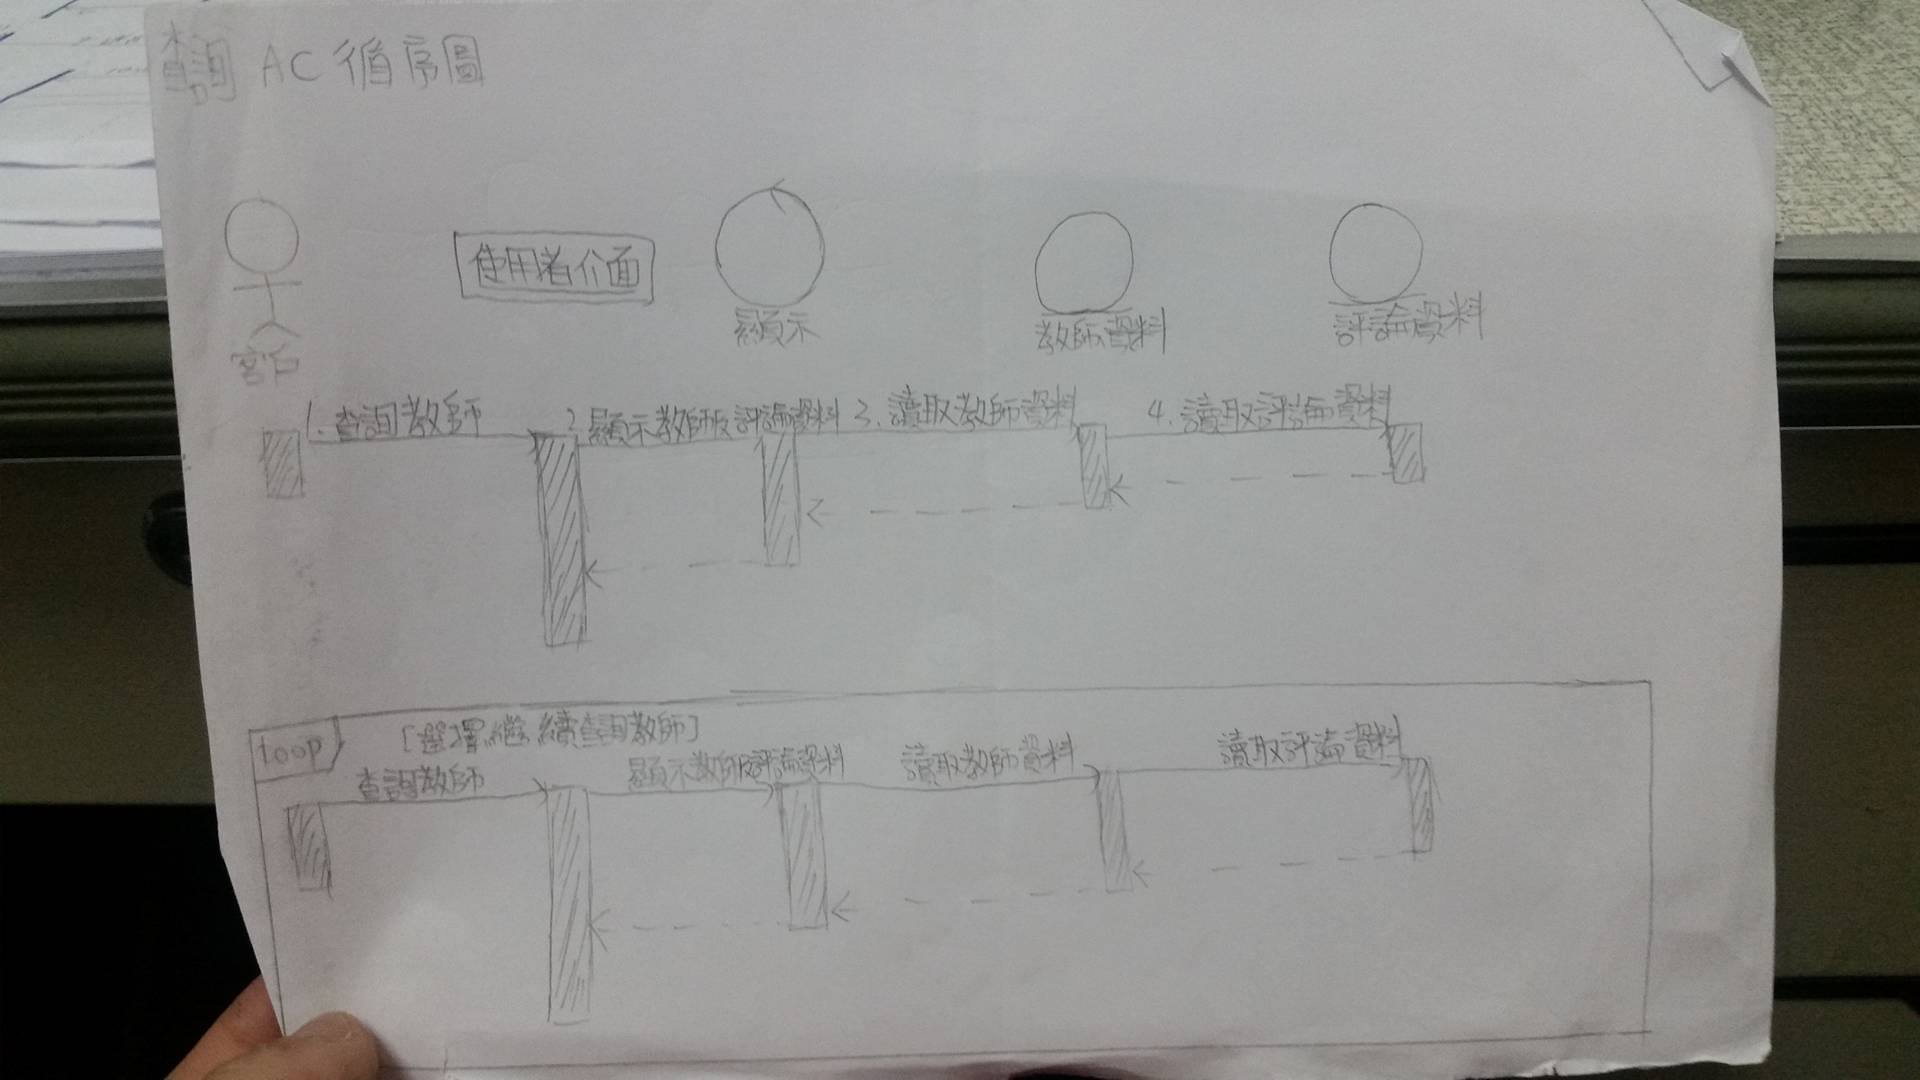 查詢 AC 循序圖
使用者介面
顯示
教師資料
評論資料
客戶
1. 查詢教師
2. 顯示教師及評論資料
3. 讀取教師資料
4. 讀取評論資料
loop
[選擇繼續查詢教師]
查詢教師
顯示教師及評論資料
讀取教師資料
讀取評論資料